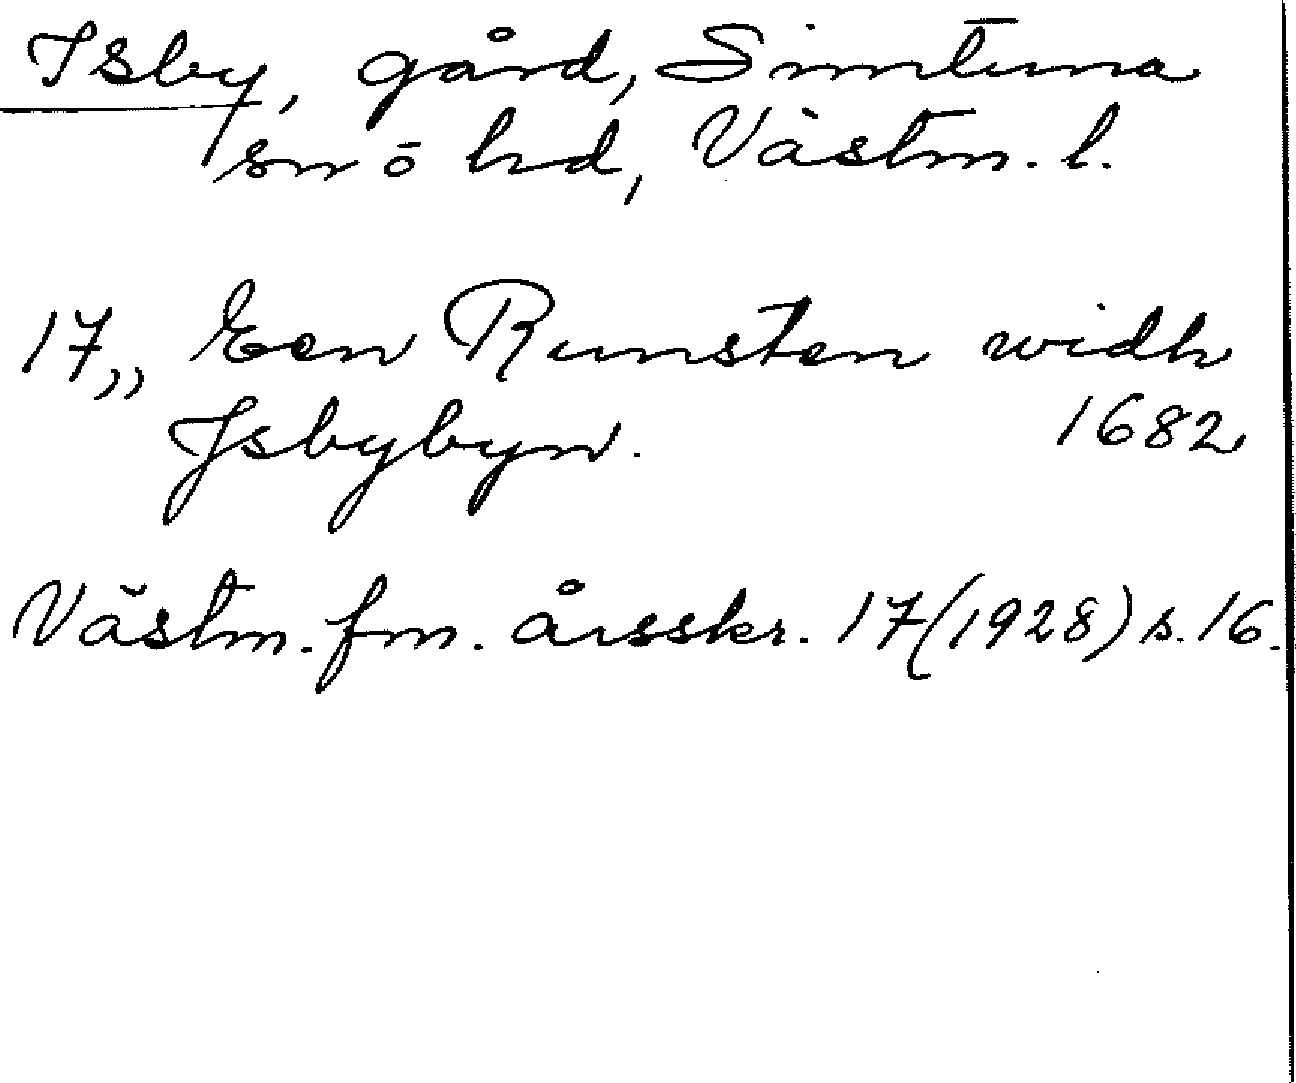 Isby, gård, Simtuna
sn ō hd, Västm. l.
17,, Een Runsten widh
Jsbybyn. 1682
Västm. fm. årsskr. 17(1928) s. 16.